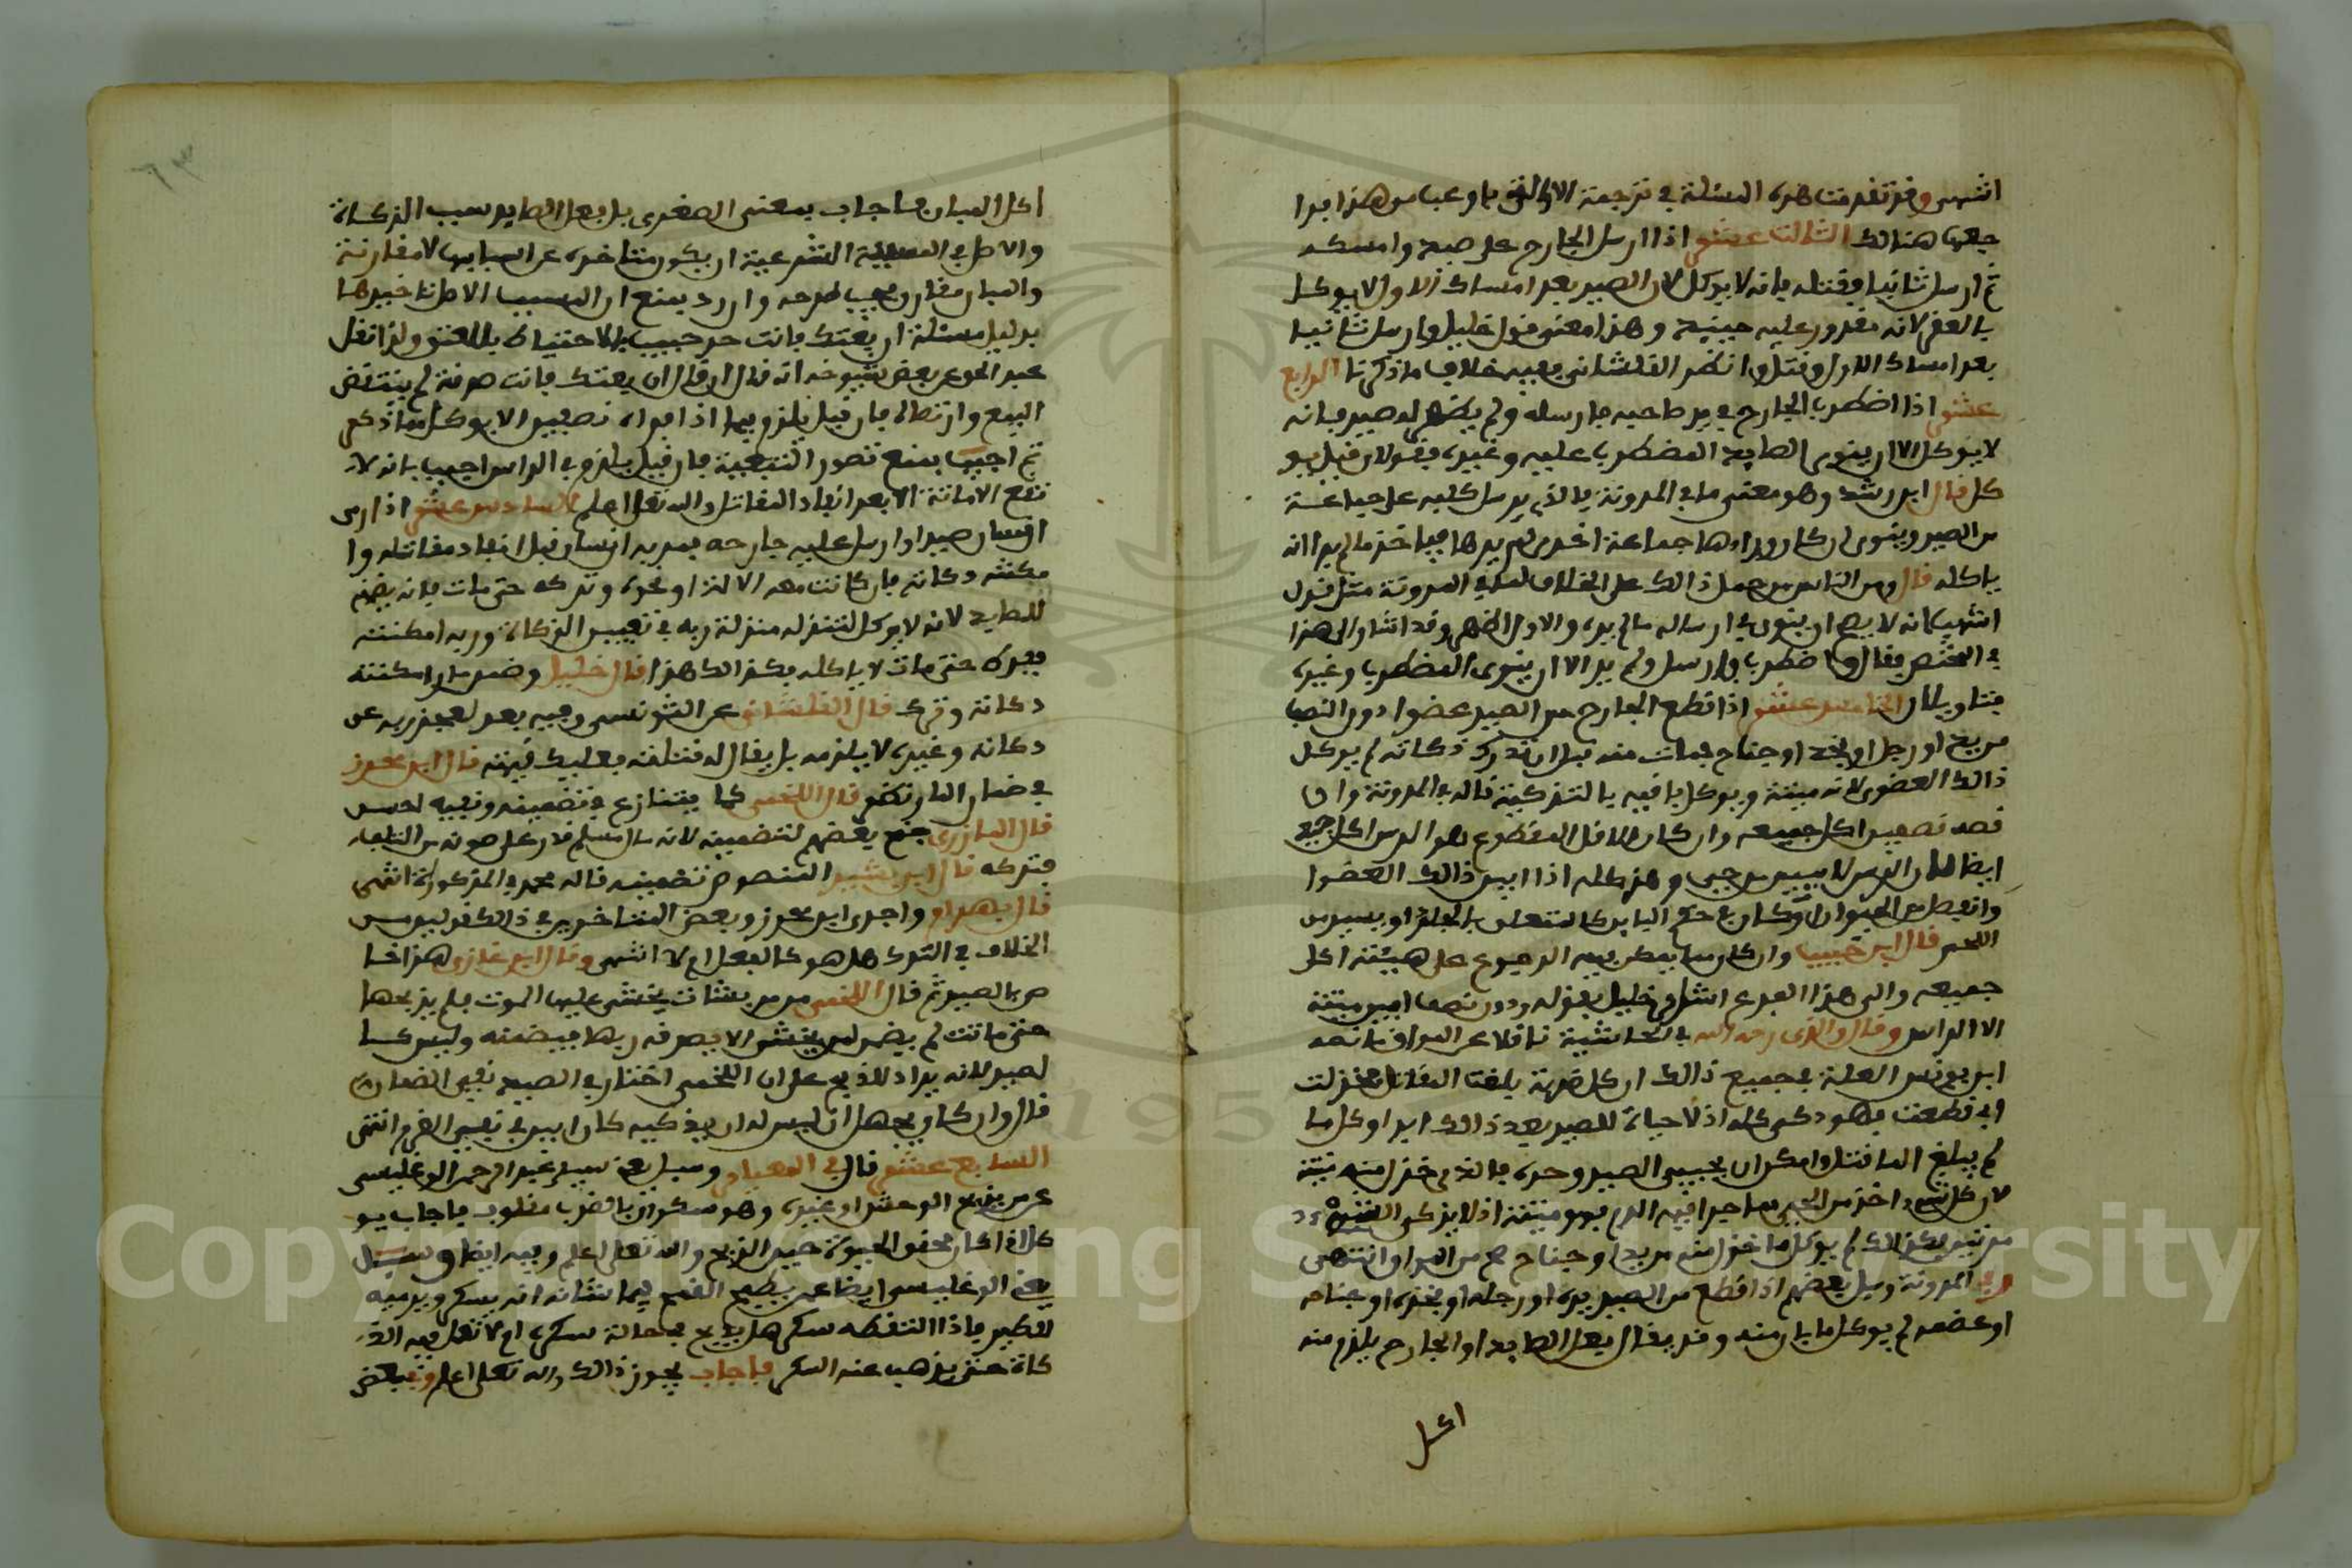 انتهى وقد تقدمت هذه المسئلة في ترجمة الآلة
جعها هنالك الثالث عشر اذا ارسل الجارح على صيد وامسكه
ثم ارسل ثانيا فقتله فانه لا يوكل لان الصيد بعد امساك الاول لا يوكل
بالعقر لانه مقدور عليه حينيذ وهذا معنى قول خليل وارسل ثانيا
بعد امساك الاول وقتل وانظر القلشاني ففيه خلاف ما ذكرنا الرابع
عشر اذا اضطرب الجارح في يد صاحبه فارسله ولم يظهر له صيد فانه
لا يوكل الا ان ينوي الصايد المضطرب عليه وغيره فقولان قيل يو
كل قال ابن رشد وهو معنى ما في المدونة في الذي يرسل كلبه على جماعة
من الصيد وينوي ان كان وراءها جماعة اخرى لم يرها فياخذ ما لم ير انه
ياكله قال ومن الناس من حمل ذالك على الخلاف لما في المدونة مثل قول
اشهب انه لا يصح ان ينوي في ارساله ما لم يره والاول اظهر وقد اشار الى هذا
في المختصر فقال او اضطرب فارسل ولم ير الا ان ينوي المضطرب وغيره
فتاويلان الخامس عشر اذا قطع الجارح من الصيد عضوا دون النصف
من يد او رجل او فخذ او جناح فمات منه قبل ان تدرك ذكاته لم يوكل
ذالك العضو لانه ميتة ويوكل باقيه بالتذكية قاله في المدونة وان
قصد نصفين اكل جميعه وان كان الاقل المقطوع هو الراس اكل جميع
ايضا لان الراس لا يبين من حي وهذا كله اذا ابين ذالك العضو
وانفصل من الحيوان او كان في حكم الباين كالمتعلق بالجلد او بيسير من
اللحم قال ابن حبيب وان كان مما يمكن فيه الرجوع على هيئته اكل
جميعه والى هذا الفرع اشار خليل بقوله ودون نصف ابين ميتة
الا الراس وقال والدي رحمه الله في الحاشية ناقلا عن المواق ما نصه
ابن يونس العلة في جميع ذالك ان كل ضربة بلغت المقاتل
اي قطعت فهو ذكي كله اذ لا حياة للصيد بعد ذالك ابدا وكل ما
لم يبلغ المقاتل وامكن ان يحيى الصيد وحده فالذي خزل منه ميتة
لان كل شيء اخذ من الحي مما جرا فيه الدم فهو ميتة اذ لا يذكى الشيء
مرتين فكذالك لم يوكل ما خزل منه من يد او جناح صح من المواق انتهى
وفي المدونة وسيل بعضهم اذا قطع من الصيد يده او رجله او فخذه او جناحه
او عضمه لم يوكل ما بان منه وقد يقال بفعل الصايد او الجارح يلزم منه
اكل
اكل المبان فاجاب بمعنى الصغرى بل بفعل الصايد سبب الذكاة
والاصل في المسببية الشرعية ان يكون متاخره عن اسبابها لا مقارنة
والمبان مقارن فيجب طرحه وان رد بمنع ان المسببات الاصل تاخيرها
بدليل مسئلة ان بعتك فانت حر حبيب بالاحتياط للعتق ولذا نقل
عبد الحق عن بعض شيوخه انه قال ان قال ان بعتك فانت صدقة لم ينتقض
البيع وارتضاه فان قيل يلزم فيما اذا ابراه نصفين الا يوكل لما ذكر
ثم اجيب بمنع تصور التبعية فان قيل يلزم في الراس اجيب بانه لا
تقع الامانة الا بعد انفاذ المقاتل والله تعالى اعلم السادس عشر اذا رمى
انسان صيدا او ارسل عليه جارحه فمر به انسان قبل انفاذ مقاتله وا
مكنته ذكاته بان كانت معه الالة او نحوه وتركه حتى مات فانه يضمنه
للصايد لانه لا يوكل لتنزله منزلة ربه في تعيين الذكاة وربه امكنته
فتركه حتى مات لا ياكله فكذالك هذا قال خليل وضمن مار امكنته
ذكاته وترك قال القلشاني عن الشونسي وفيه بعد لعجز ربه عن
ذكاته وغيره لا يلزمه بل يقال له قتلته فعليك قيمته قال ابن محرز
في ضمان المار نظر قال اللخمي كما يتنازع في تضمينه ونفيه احسن
قال المازري جنح بعضهم لتضمينه لانه مال مسلم قدر على صونه من التلف
فتركه قال ابن بشير المنصوص تضمينه قاله محمد في المذكور انتهى
قال بهرام واجرى ابن محرز وبعض المتاخرين في ذالك قولين من
الخلاف في الترك هل هو كالفعل ام لا انتهى وقال ابن غازي هذا خا
ص بالصيد ثم قال اللخمي من مر بشات يخشى عليها الموت فلم يذبحها
حتى ماتت لم يضمن لانه يخشى الا يصدقه ربها فيضمنه وليس كا
لصيد لانه يراد للذبح على ان اللخمي اختار في الصيد نفي الضمان
قال وان كان يجهل ان ليس له ان يذكيه كان ابين في نفي الغرم انتهى
السابع عشر قال في المعيار وسيل سيدي عبد الرحمن الوغليسي
عمن يذبح الوحش او غيره وهو سكران بالضرب مغلوب فاجاب يو
كل اذا كان محقق الحيوة حين الذبح والله تعالى اعلم وفيه ايضا وسيل
يعني الوغليسي ايضا عمن يطعم القمح بما شانه انه يسكر ويرميه
للطير فاذا التقطه سكر هل يذبح في حالة سكره ام لا تعمل فيه الذ
كاة حتى يذهب عنه السكر فاجاب يجوز ذالك والله تعالى اعلم وفي بعض